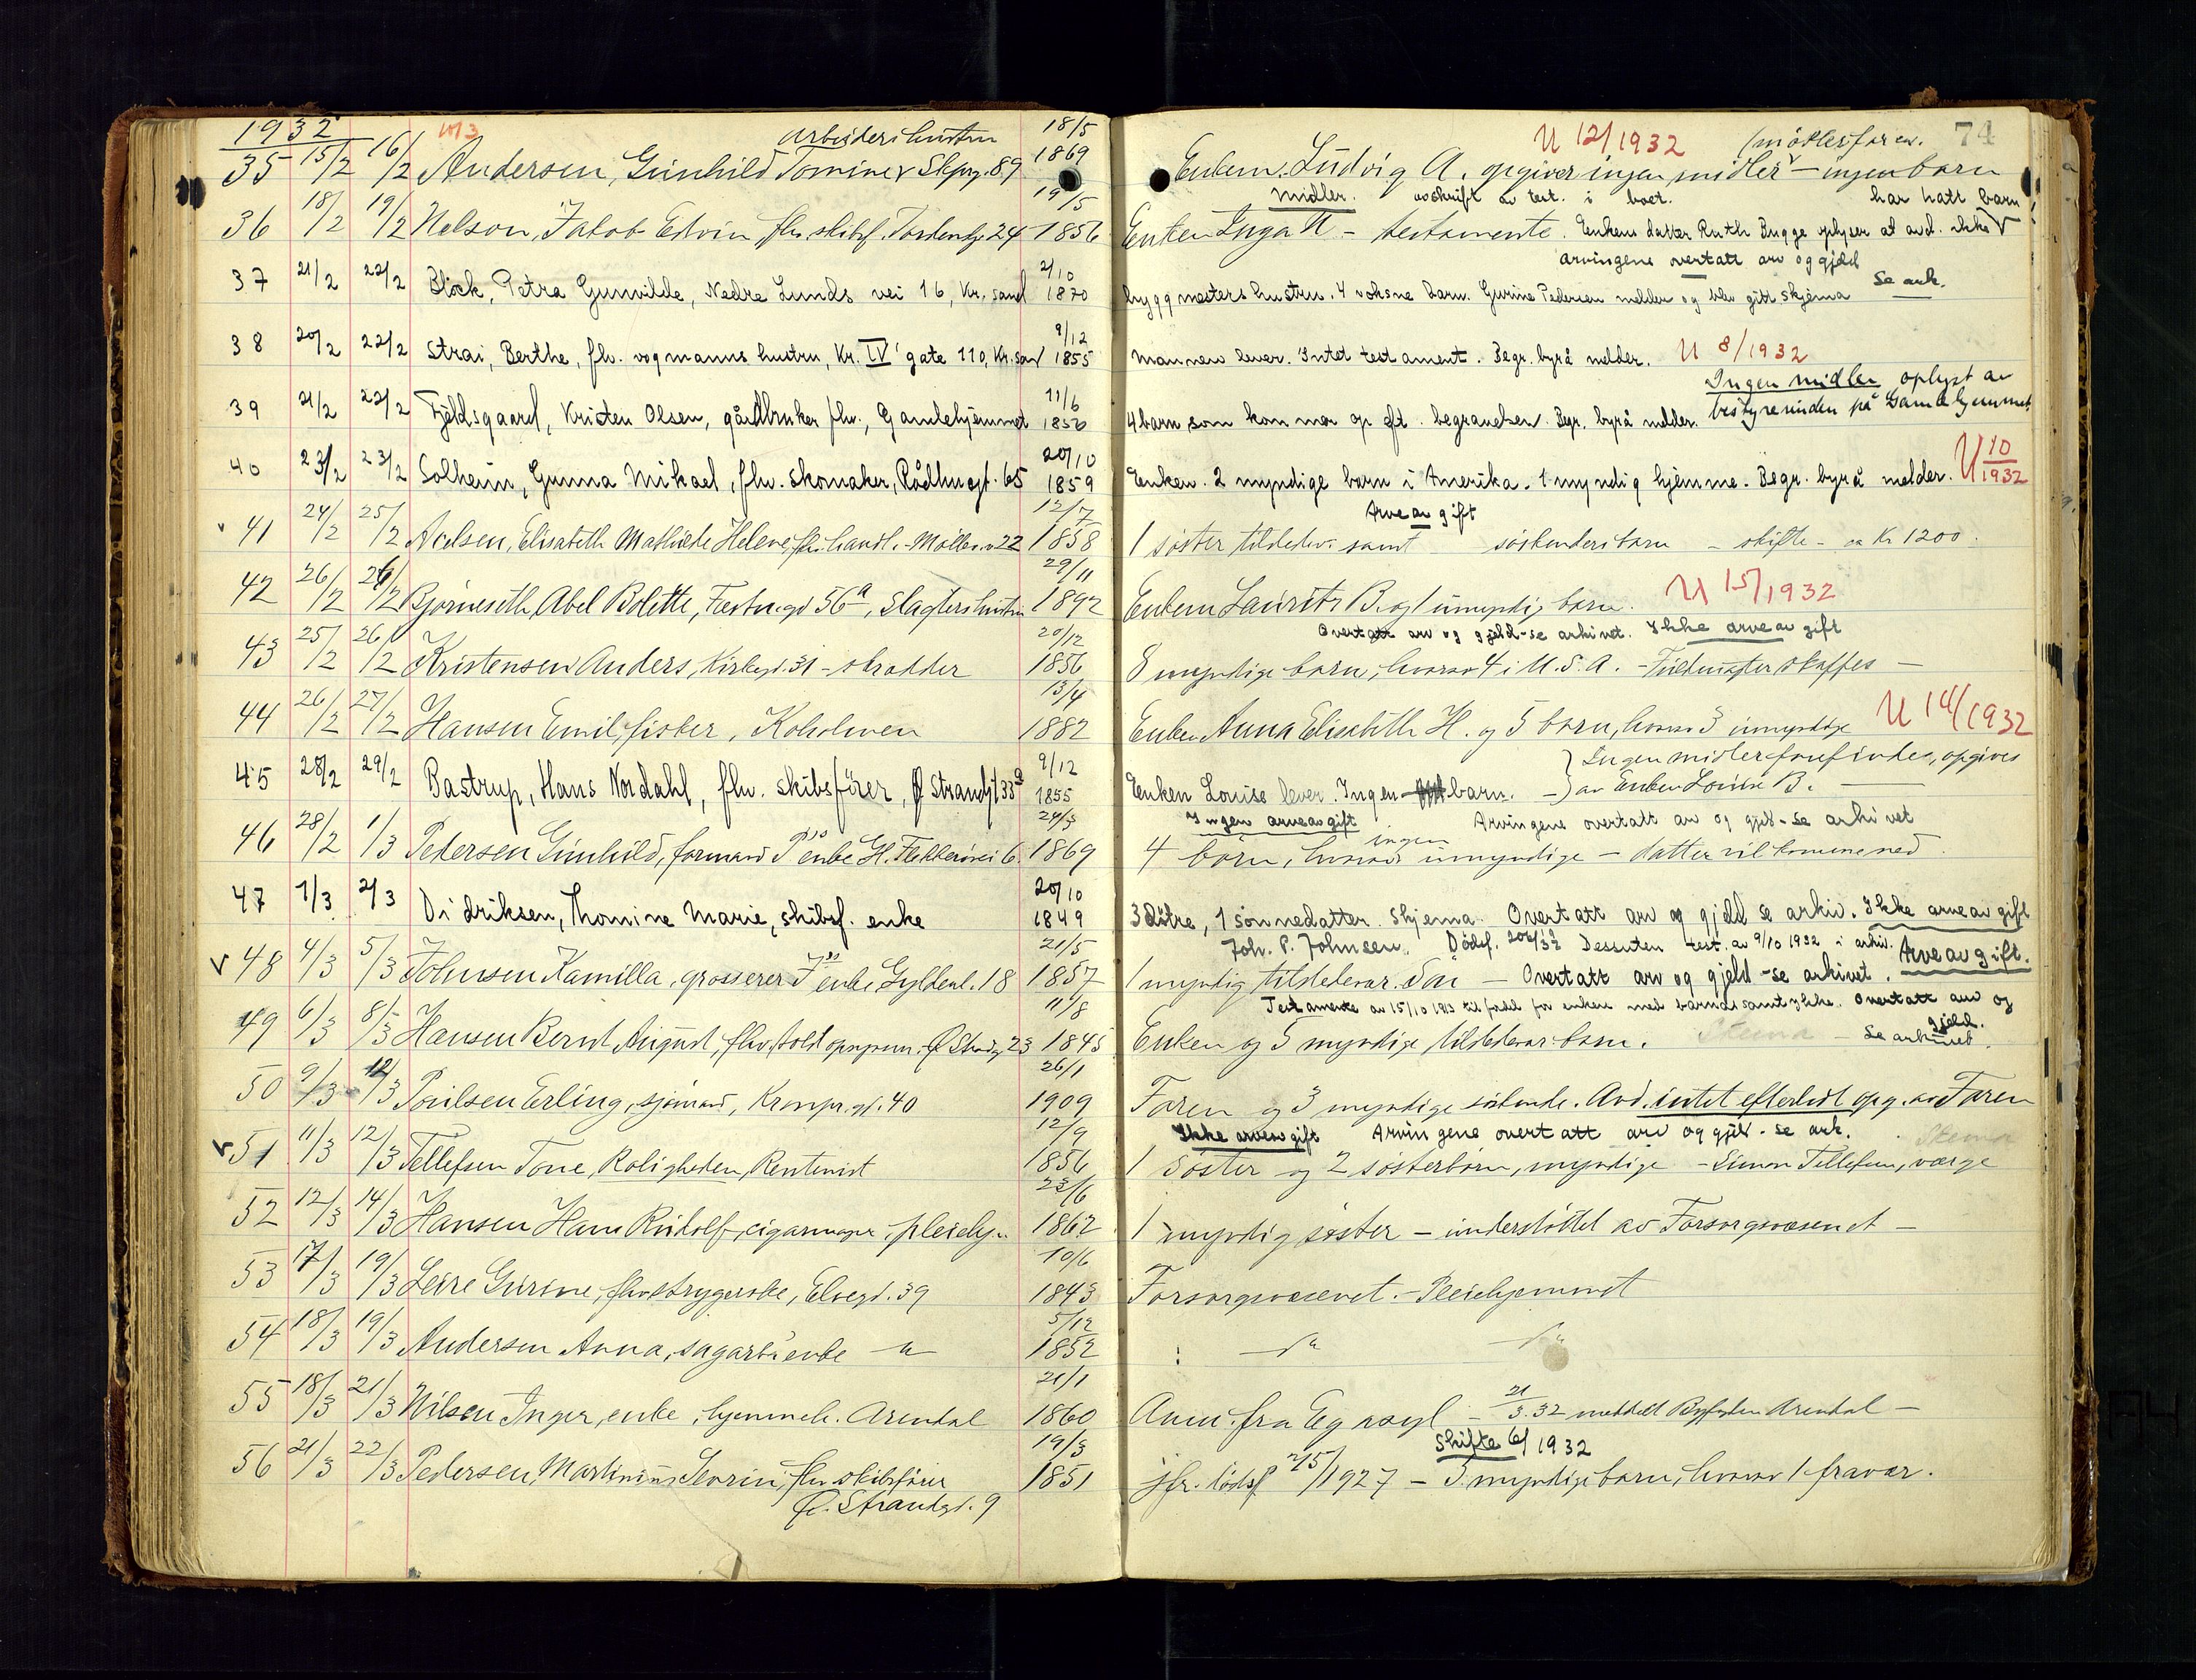 1932
arbeiders hustru 18/5
U 12/1932 74
35 15/2 16/2 Andersen, Gunhild Tomine 89 1869 Enkem. Ludvig A. opgiver ingen midler – ingen barn
19/5 midler. avskrift av test. i boet. har hatt barn
36 18/2 19/2 Nelson, Jakob Edvin flv. skibsf. Tordensgt. 24 1856 Enken Inga N – testamente. Enkens datter Ruth Bugge oplyser at avd. ikke
2/10 arvingene overtatt arv og gjeld
37 21/2 22/2 Block, Petra Gunvilde, Nedre Lunds vei 16, Kr. sand 1870 byggmesters hustru. 4 voksne barn. Gurine Pedersen melder og blev gitt skjema Se ark.
9/12
38 20/2 22/2 Strai, Berthe, flv. vognmanns hustru, Kr. IV' gate 110, Kr. sand 1855 mannen lever. Intet testament. Begr. byrå melder. U 8/1932
11/6 Ingen midler oplyst av
39 21/2 22/2 Fjeldsgaard, Kristen Olsen, gårdbruker flv., Gamlehjemmet 1856 4 barn som kommer op eft. begravelsen. Begr. byrå melder. bestyrerinden på Gamlehjemmet
20/10
40 23/2 23/2 Solheim, Gunna Mikael, flv. skomaker, Rådhusgt. 65 1859 Enken. 2 myndige barn i Amerika. 1 myndig hjemme. Begr. byrå melder. U 10/1932
12/7 Arveavgift
41 24/2 25/2 Elisabeth Mathilde Helene, flv. handl. Møllerv. 22 1858 1 søster tilstedev. samt søskendes barn – skifte – ca Kr 1200.
29/11
42 26/2 26/2 Bjørneseth, Abel Bolette, Festn.gt 56a, Slagters hustru 1892 Enkem Lauritz B. og 1 umyndig barn. U 15/1932
20/12 Overtatt arv og gjeld – se arkivet. Ikke arveavgift
43 25/2 26/2 Kristensen Anders, Kirkegt. 31 – skrædder 1856 8 myndige barn, hvorav 4 i U.S.A. – skaffes –
13/4
44 26/2 27/2 Hansen Emil, fisker, Kokolmen 1882 Enken Anna Elisabeth H. og 5 barn, hvorav 3 umyndige U 14/1932
9/12 Ingen midler forefindes, opgives
45 28/2 29/2 Bastrup, Hans Nordahl, flv. skibsfører, Ø Strandgt 33a 1855 Enken Louise lever. Ingen barn. – av Enken Louise B. –
24/3 Ingen arveavgift Arvingene overtatt arv og gjeld – se arkivet
46 28/2 1/3 Pedersen Gunhild, formand P enke H. Flekkerøvei 6. 1869 4 børn, hvorav ingen umyndige – datter vil komme ned
20/10
47 1/3 2/3 Didriksen, Thomine Marie, skibsf. enke 1849 3 døtre, 1 sønnedatter. Skjema. Overtatt arv og gjeld se arkiv. Ikke arveavgift
21/5 Joh. P. Johnsen. Dødsf. Dessuten test. av 9/10 1932 i arkiv. Arveavgift.
48 4/3 5/3 Johnsen Kamilla, grosserer J enke Gyldenl. 18 1857 1 myndig tilstedevær. søn – Overtatt arv og gjeld – se arkivet.
11/8 Testamente av 15/10 1913 til fordel for enken med Overtatt arv og
49 6/3 8/3 Hansen Bernt August, flv. toldopsynsm. Ø. Strandgt 23 1845 Enken og 5 myndige tilstedevær. barn. – Se arkivet gjeld.
26/1
50 9/3 12/3 Poulsen Erling, sjømand, Kronpr.gt. 40 1909 Faren og 3 myndige søskende. Avd. intet efterladt opg. av Faren
12/9 Ikke arveavgift Arvingene overtatt arv og gjeld – se ark.
51 11/3 12/3 Tellefsen Tone, Roligheden, Rentenist 1856 1 Søster og 2 søsterbørn, myndige – Simon Tellefsen, værge
23/6
52 12/3 14/3 Hansen Hans Rudolf, cigarmager, pleiehj. 1862 1 myndig søster – understøttet av Forsorgsvæsenet –
10/6
53 17/3 19/3 Leire Gurine, flv. strygerske, Elvegt. 39 1843 Forsorgsvæsenet. – Pleiehjemmet
5/12
54 18/3 19/3 Andersen Anna, sagarb. enke –"– 1852 –"– –"–
21/1
55 18/3 21/3 Nilsen Inger, enke, hjemmeh. Arendal 1860 Anm. fra Eg asyl – 21/3.32 meddelt Byfogden Arendal –
19/3 Skifte 6/1932
56 21/3 22/3 Pedersen, Martinius Severin, flv. skibsfører 1851 jfr. dødsf 215/1927 – 5 myndige barn, hvorav 1 fravær.
Ø. Strandgt. 9